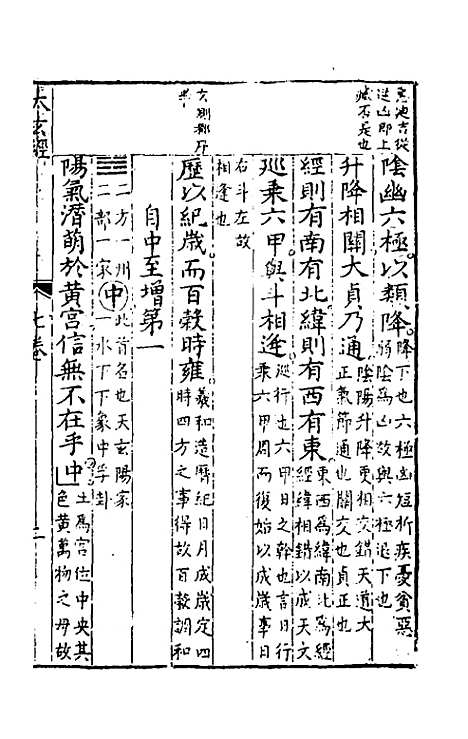 陰幽六極以類降降下也六極凶短折疾憂貧惡弱陰為凶故與六極退下也
升降相關大貞乃通陰陽升降更相交錯天道大正氣節通也關交也貞正也
經則有南有北緯則有西有東東西為緯南北為經經緯相錯以成天文
巡乘六甲與斗相逢巡行也六甲日之幹也言日行乘六甲周而復始以成歲事日
右斗左故相逢也
歷以紀歲而百穀時雍羲和造曆紀日月成歲定四時四方之事得故百穀調和
自中至增第一
一方一州一部一家中一水下下象中孚卦此首名也天玄陽家
陽氣潛萌於黃宮信無不在乎中土為宮位中央其色黃萬物之母故
太玄經
七卷